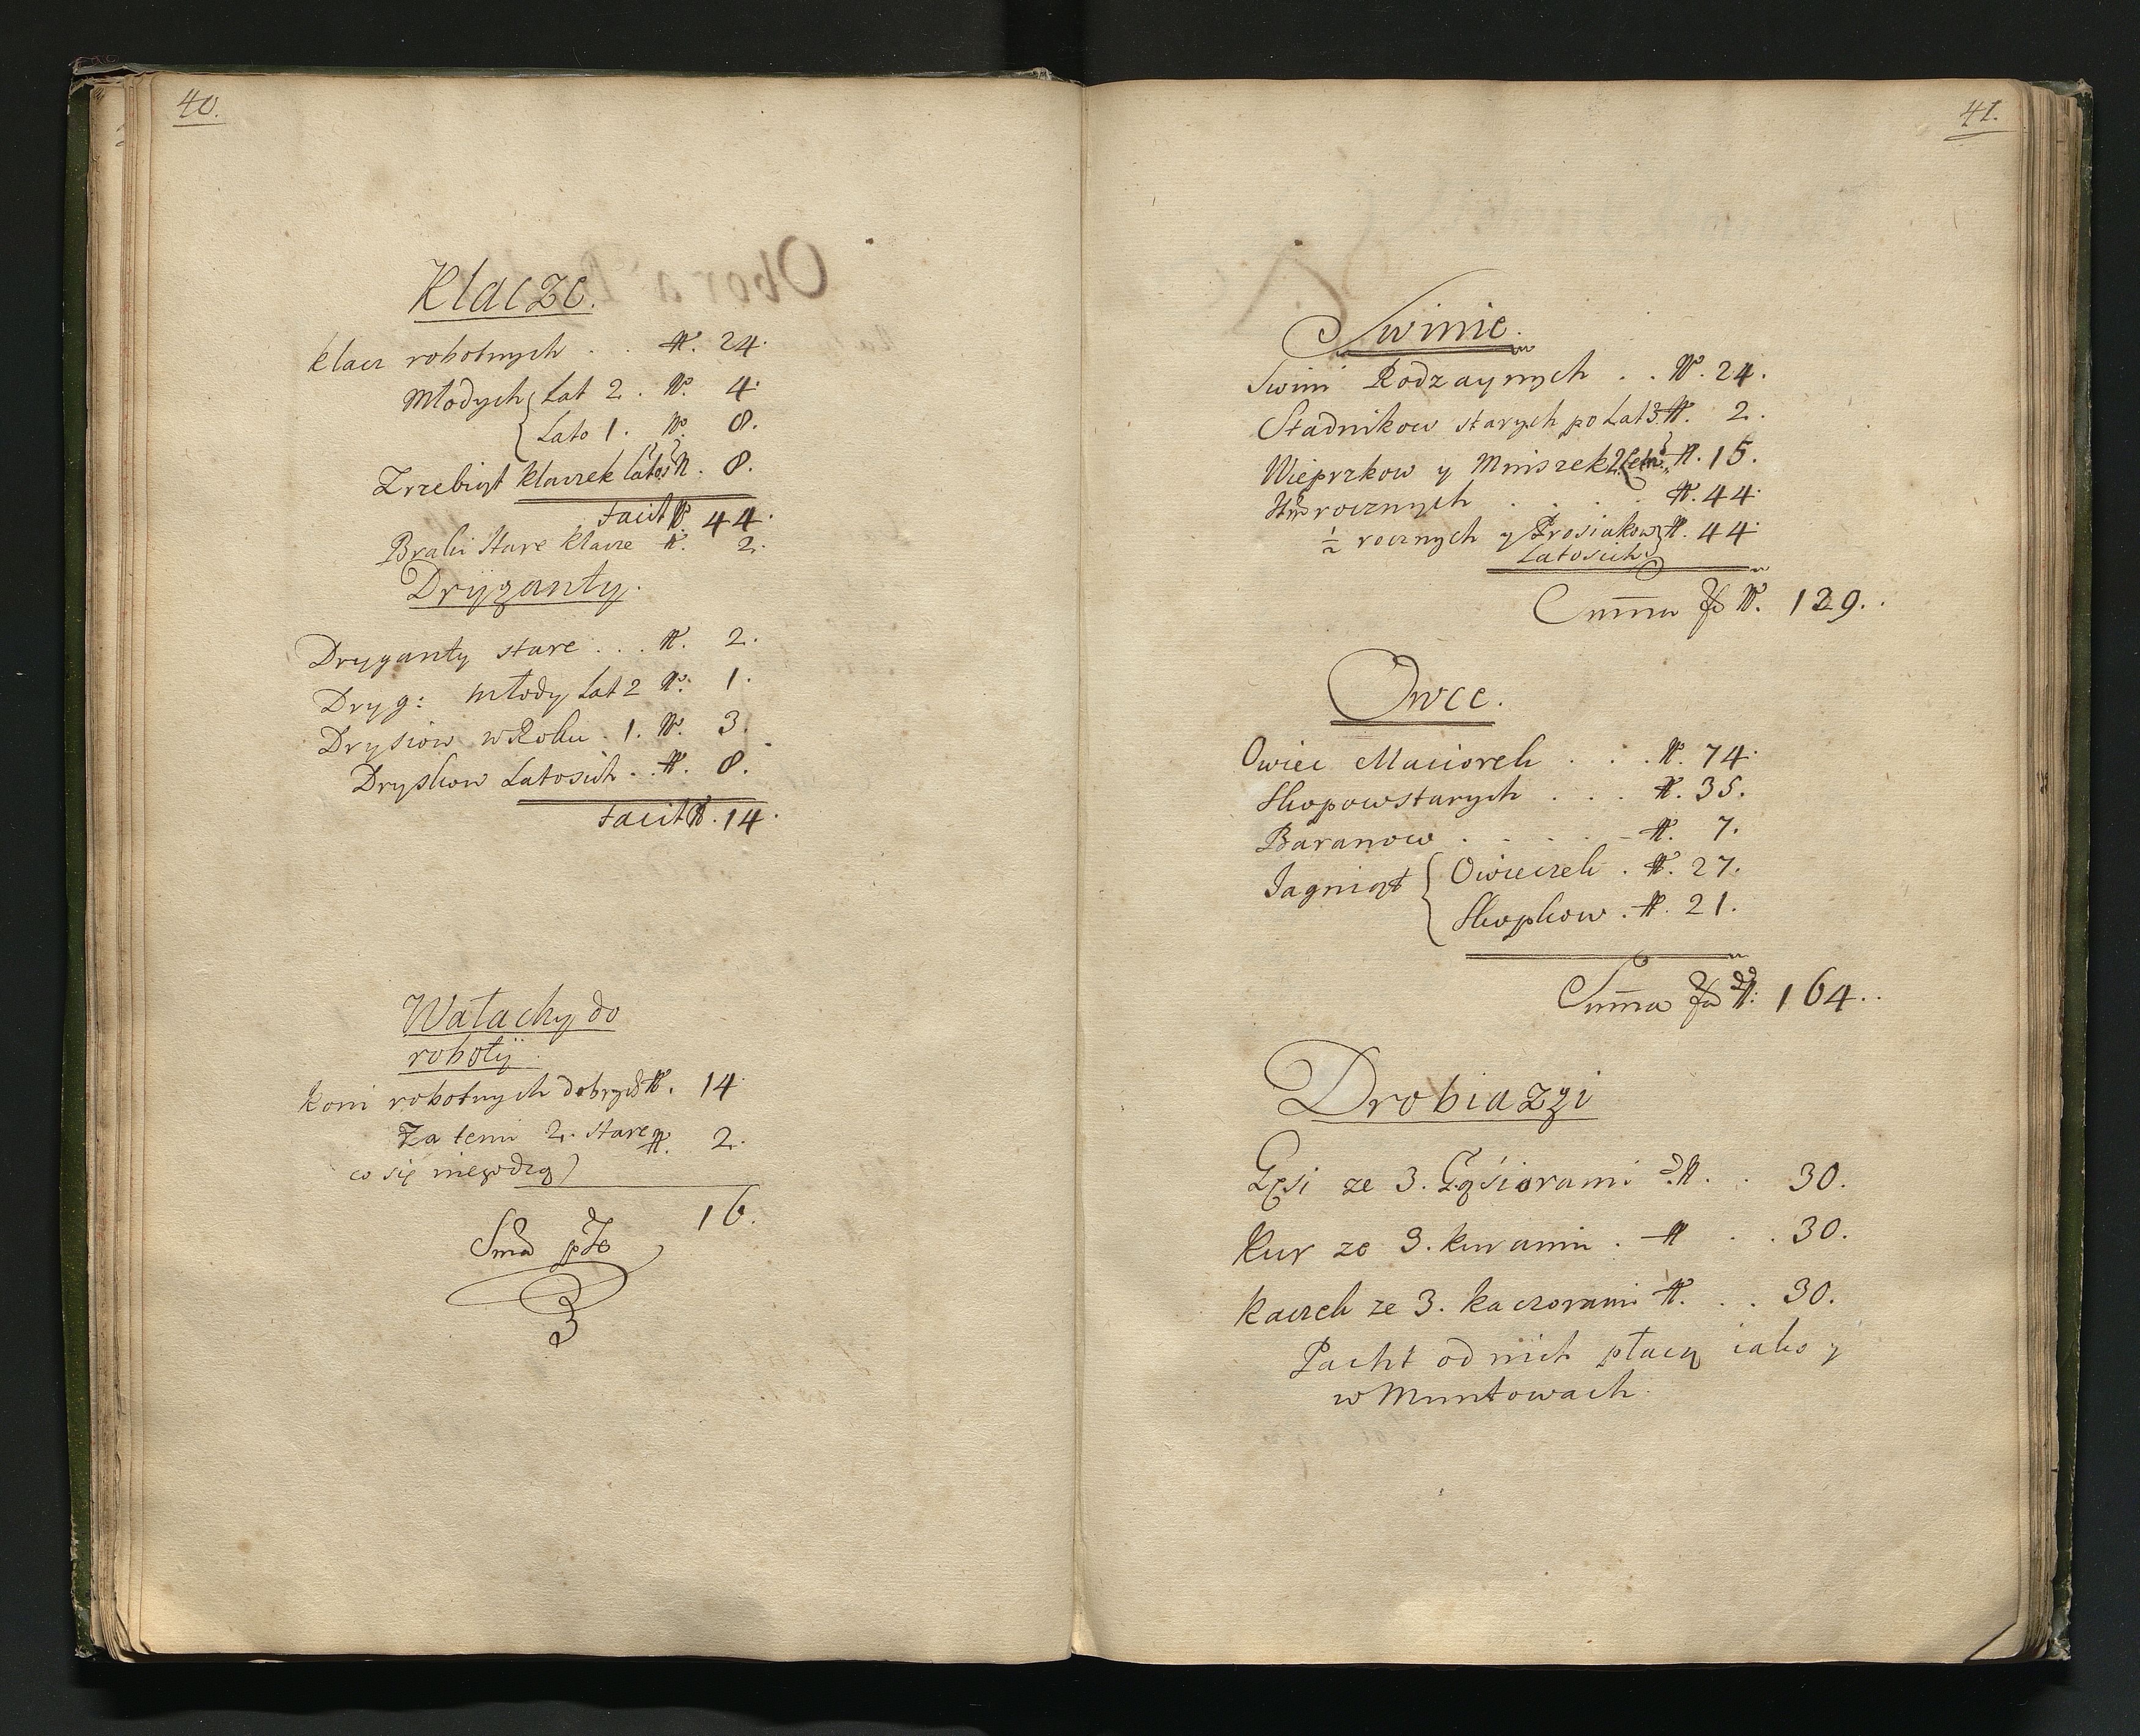 40.
Klacze.
klacz robotnych . . N. 24.
Młodych { Lat 2. N. 4.
Lato 1. N. 8.
Zrzebiąt klaczek latoś: N. 8.
Facit N. 44.
Braki Stare klacze N. 2.
Dryganty.
Dryganty stare . . . N. 2.
Dryg: młody Lat 2 N. 1.
Drysiow w Roku. 1. N. 3.
Dryskow Latosich . . N. 8.
Facit N. 14.
Wałachy do
roboty.
koni robotnych dobrych N. 14.
Za temi 2. stare N. 2.
co się niegodzą)
16.
Sma
41.
Swinie.
Swini Rodzaynych . . N. 24.
Stadnikow starych po Lat 3. N. 2.
Wieprzkow y Mniszek 2 letn: N. 15.
rocznych . . . . N. 44.
½ rocznych y Prosiakow N. 44.
Latosich
Summa N. 129.
Owce.
Owiec Maciorek . . . N. 74.
Skopow starych . . . N. 35.
Baranow . . . . N. 7.
Jagniąt { Owieczek . N. 27.
Skopkow . N. 21.
Summa N. 164.
Drobiazgi
Gęsi ze 3. Gąsiorami N. . 30.
Kur ze 3. kurami . N . . 30.
Kaczek ze 3. kaczorami N. . . 30.
Pacht od nich płacą iako y
w Muntowach.